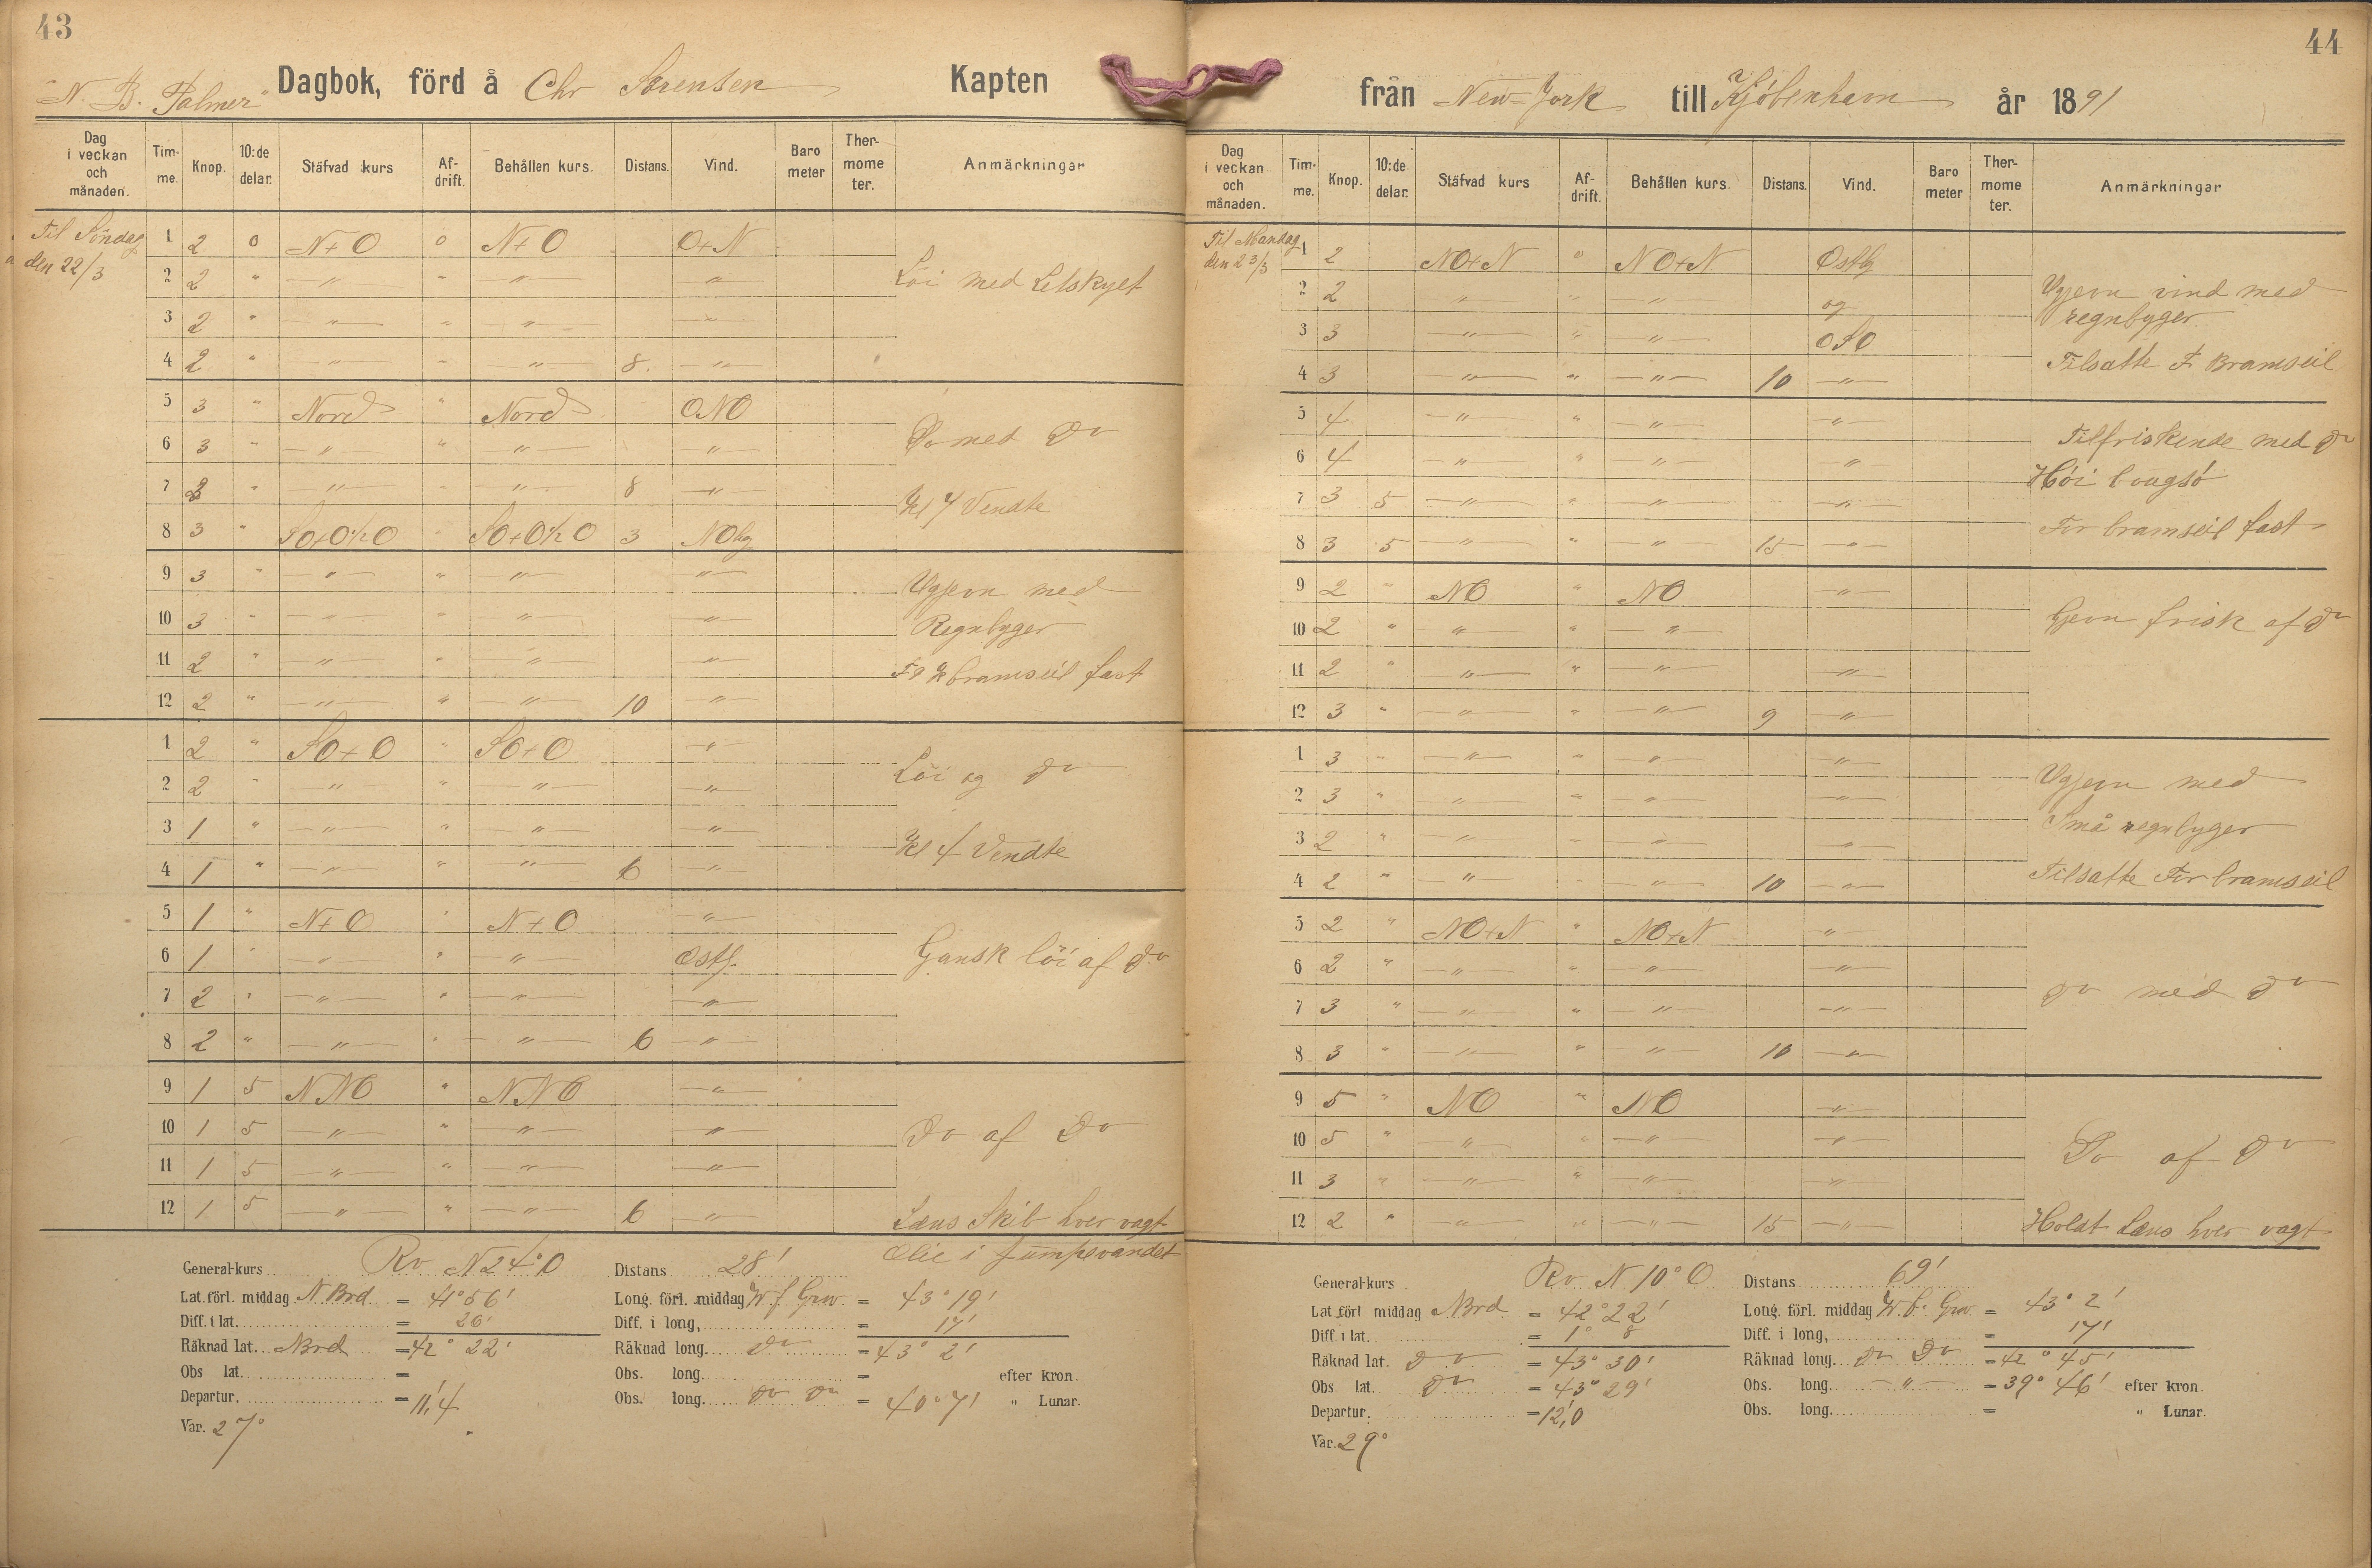 43
"N. B. Palmer" Dagbok, förd å Chr Sørensen Kapten
Dag i veckan och månaden. Tim-me. Knop. 10:de delar. Stäfvad kurs Af-drift. Behållen kurs. Distans. Vind. Baro meter Ther-mome ter. Anmärkningar
Til Söndag den 22/3
1 2 0 N+O 0 N+O O+N
2 2 " " " " " Löi med Letskyet
3 2 " " " " "
4 2 " " " " 8. "
5 3 " Nord " Nord ONO
6 3 " " " " " Do med Do
7 2 " " " " 8 "
Kl 7 Vendte
8 3 " SO+O½O " SO+O½O 3 NOlg
9 3 " " " " " Ugjevn med
10 3 " " " " " Regnbyger
11 2 " " " " " F & K bramseil fast
12 2 " " " " 10 "
1 2 " SO+O " SO+O "
2 2 " " " " " Löi og Do
3 1 " " " " "
4 1 " " " " 6 " Kl 4 Vendte
5 1 " N+O " N+O "
6 1 " " " " Ostl. Gansk löi af Do
7 2 " " " " "
8 2 " " " " 6 "
9 1 5 NNO " NNO "
10 1 5 " " " " Do af Do
11 1 5 " " " "
12 1 5 " " " 6 " Læns Skib hver vagt
Olie i Pumpevandet
General-kurs Rv N 24° O Distans 28'
Lat. förl. middag N Brd = 41° 56' Long. förl. middag W f Grw. = 43° 19'
Diff. i lat. = 26' Diff. i long, = 17'
Räknad lat. N Brd = 42° 22' Räknad long. Do = 43° 2'
Obs lat. = Obs. long. = efter kron.
Departur. = 11,4 Obs. long. Do Do = 40° 7' " Lunar.
Var. 27°
44
från New-York till Kjöbenhavn år 1891
Dag i veckan och månaden. Tim-me. Knop. 10:de delar. Stäfvad kurs Af-drift. Behållen kurs. Distans. Vind. Baro meter Ther-mome ter. Anmärkningar
Til Mandag den 23/3
1 2 NO+N 0 NO+N Ostlg
2 2 " " " og Ugjevn vind med
regnbyger.
3 3 " " " OSO
4 3 " " " 10 " Tilsatte F. Bramseil
5 4 " " " " Tilfriskende med Do
6 4 " " " " Höi bougsö
7 3 5 " " " "
8 3 5 " " " 15 " For bramseil fast
9 2 " NO " NO "
10 2 " " " " Gjevn frisk af Do
11 2 " " " " "
12 3 " " " " 9 "
1 3 " " " " "
2 3 " " " " " Ugjevn med
3 2 " " " " " Små regnbyger
4 2 " " " " 10 " Tilsatte For bramseil
5 2 " NO+N " NO+N "
6 2 " " " " "
7 3 " " " " " Do med Do
8 3 " " " " 10 "
9 5 " NO " NO "
10 5 " " " " " Do af Do
11 3 " " " " "
12 2 " " " " 15 " Holdt Læns hver vagt
General-kurs Rv N 10° O Distans 69'
Lat förl middag N Brd = 42° 22' Long. förl. middag W. f. Grw. = 43° 2'
Diff. i lat. = 1° 8 Diff. i long, = 17'
Räknad lat. Do = 43° 30' Räknad long. Do Do = 42° 45'
Obs lat. Do = 43° 29' Obs. long. " = 39° 46' efter kron.
Departur. = 12,0 Obs. long. = " Lunar.
Var. 29°